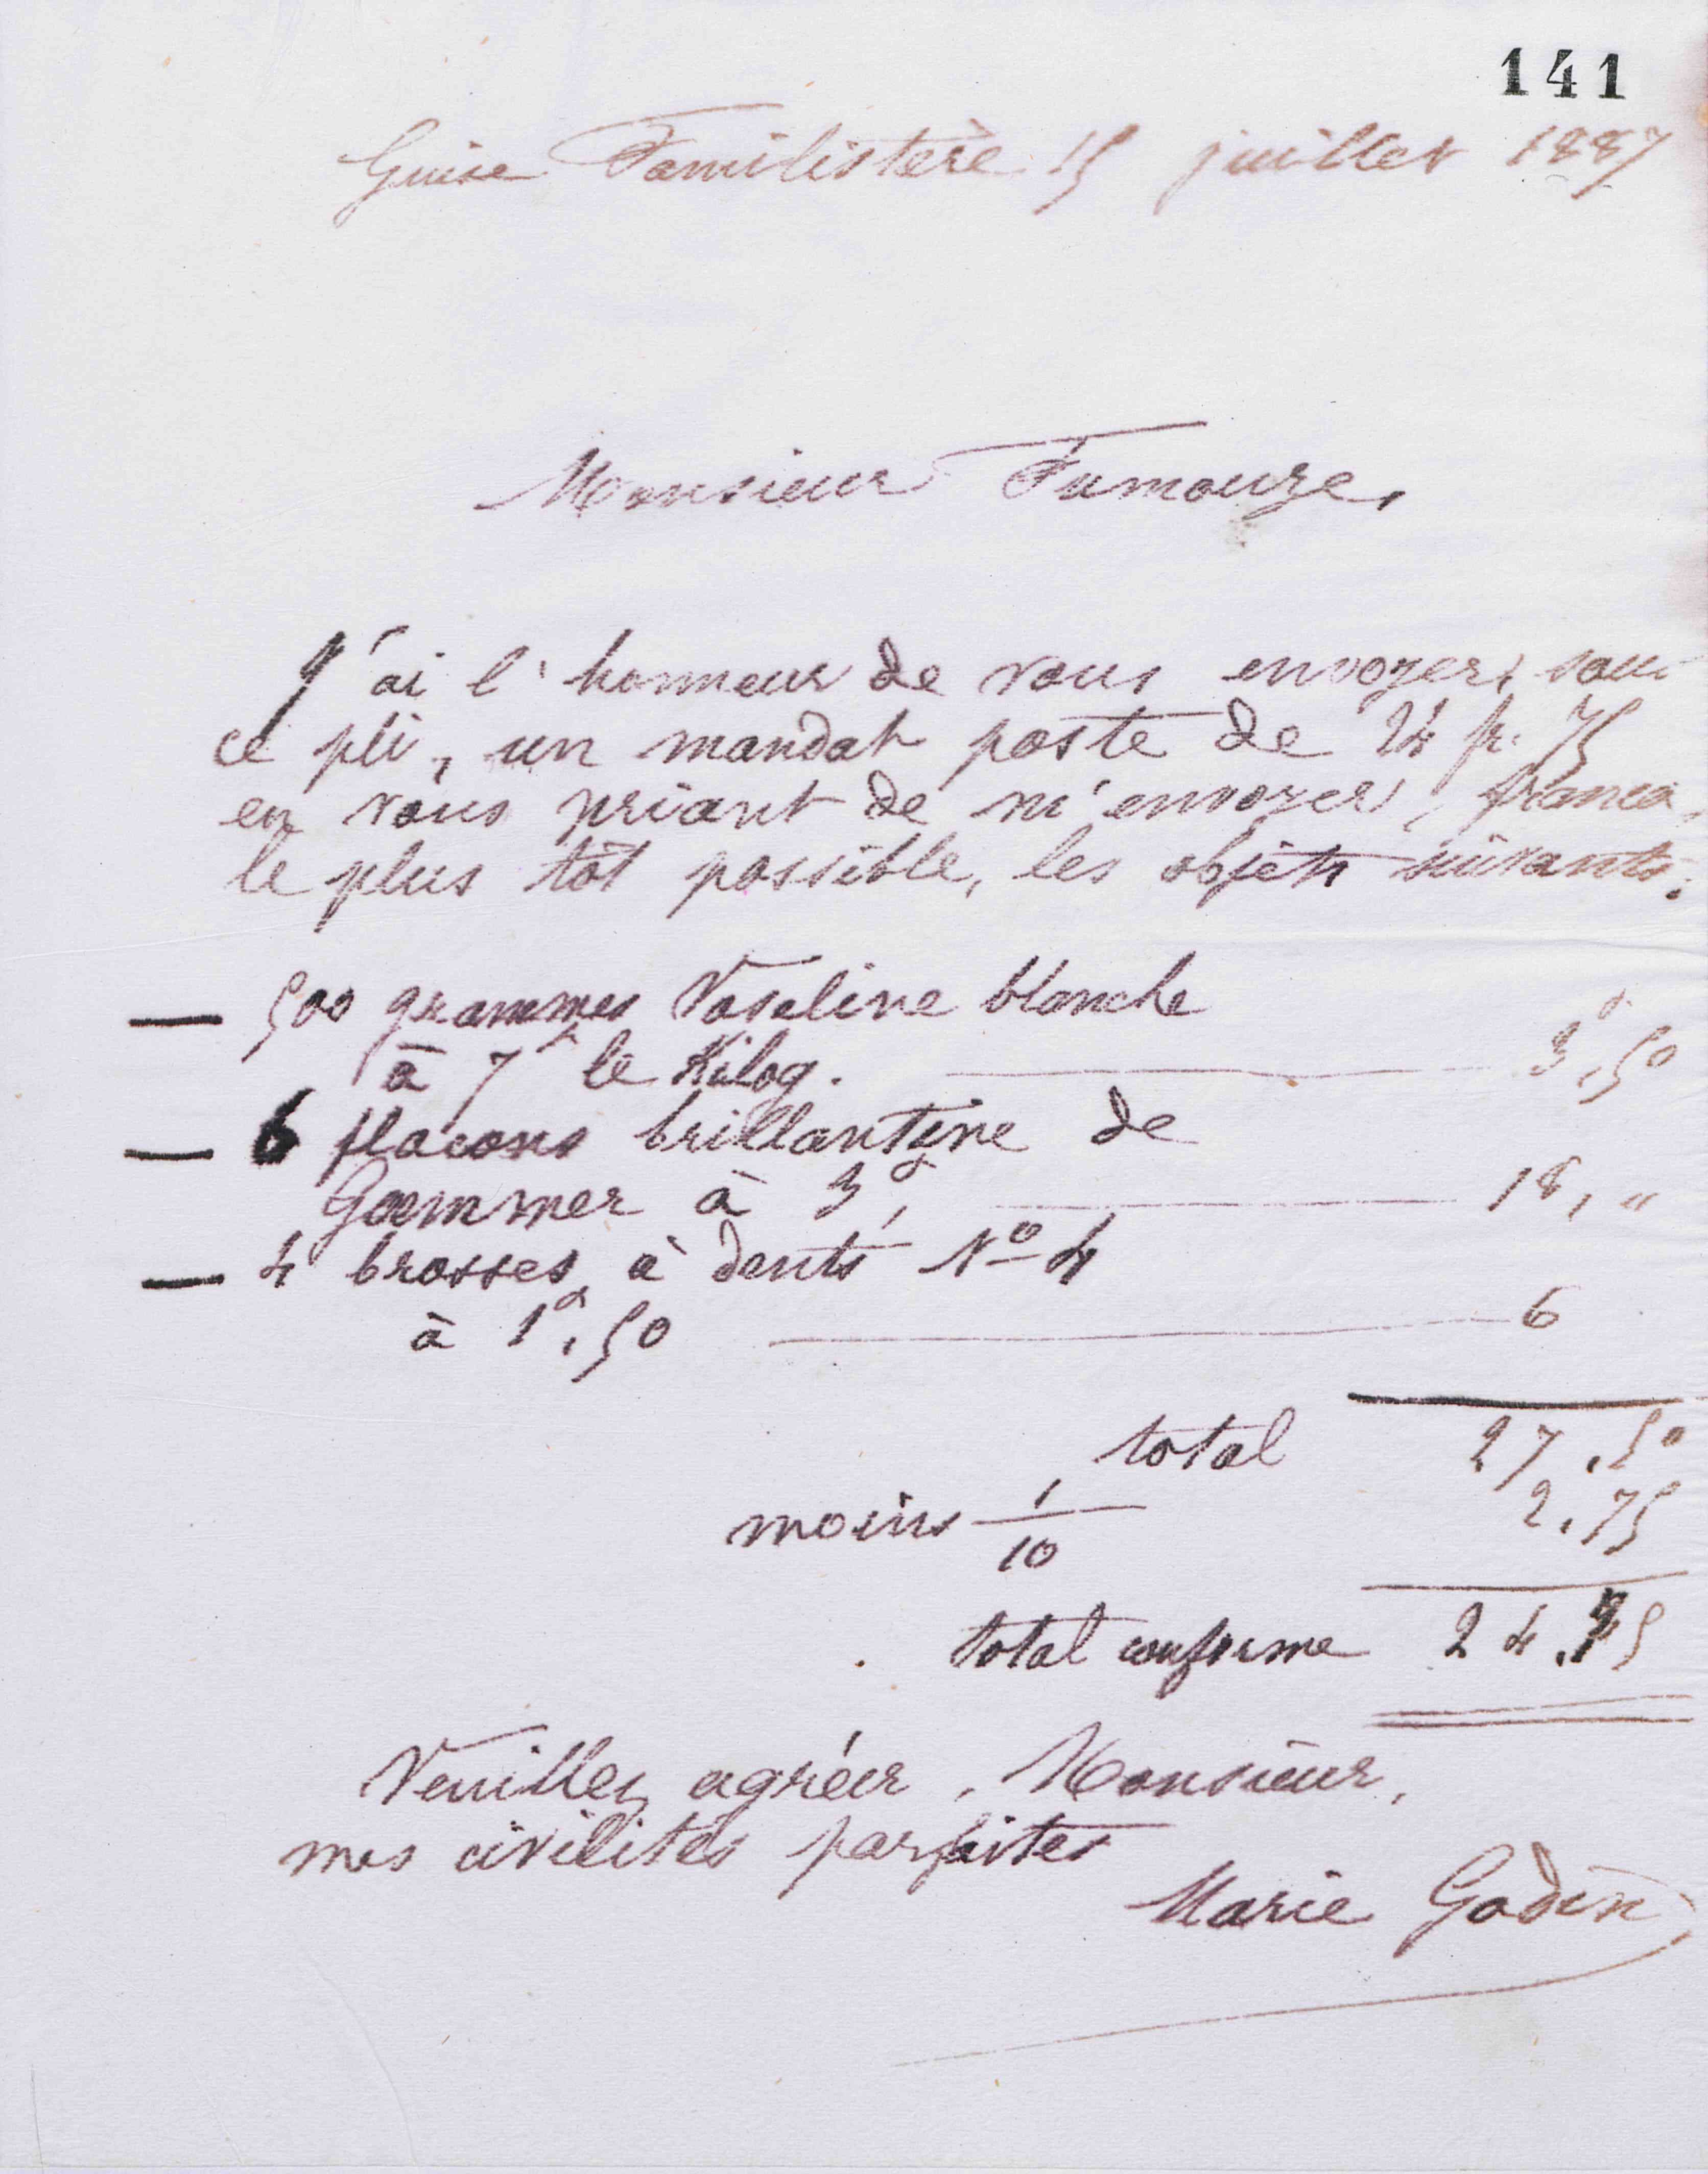 141
Guise Familistère 15 juillet 1887
Monsieur Fumouze,
J'ai l'honneur de vous envoyer, sous
ce pli, un mandat poste de 24 fr. 75
en vous priant de m'envoyer, franco,
le plus tôt possible, les objets suivants:
— 500 grammes Vaseline blanche
à 7f le Kilog. — 3f,50
— 6 flacons brillantine de
à 3f, — 18, "
— 4 brosses à dents No 4
à 1f,50 — 6
total 27,50
moins 1/10 2,75
total conforme 24,75
Veuillez agréer, Monsieur,
mes civilités parfaites
Marie Godin